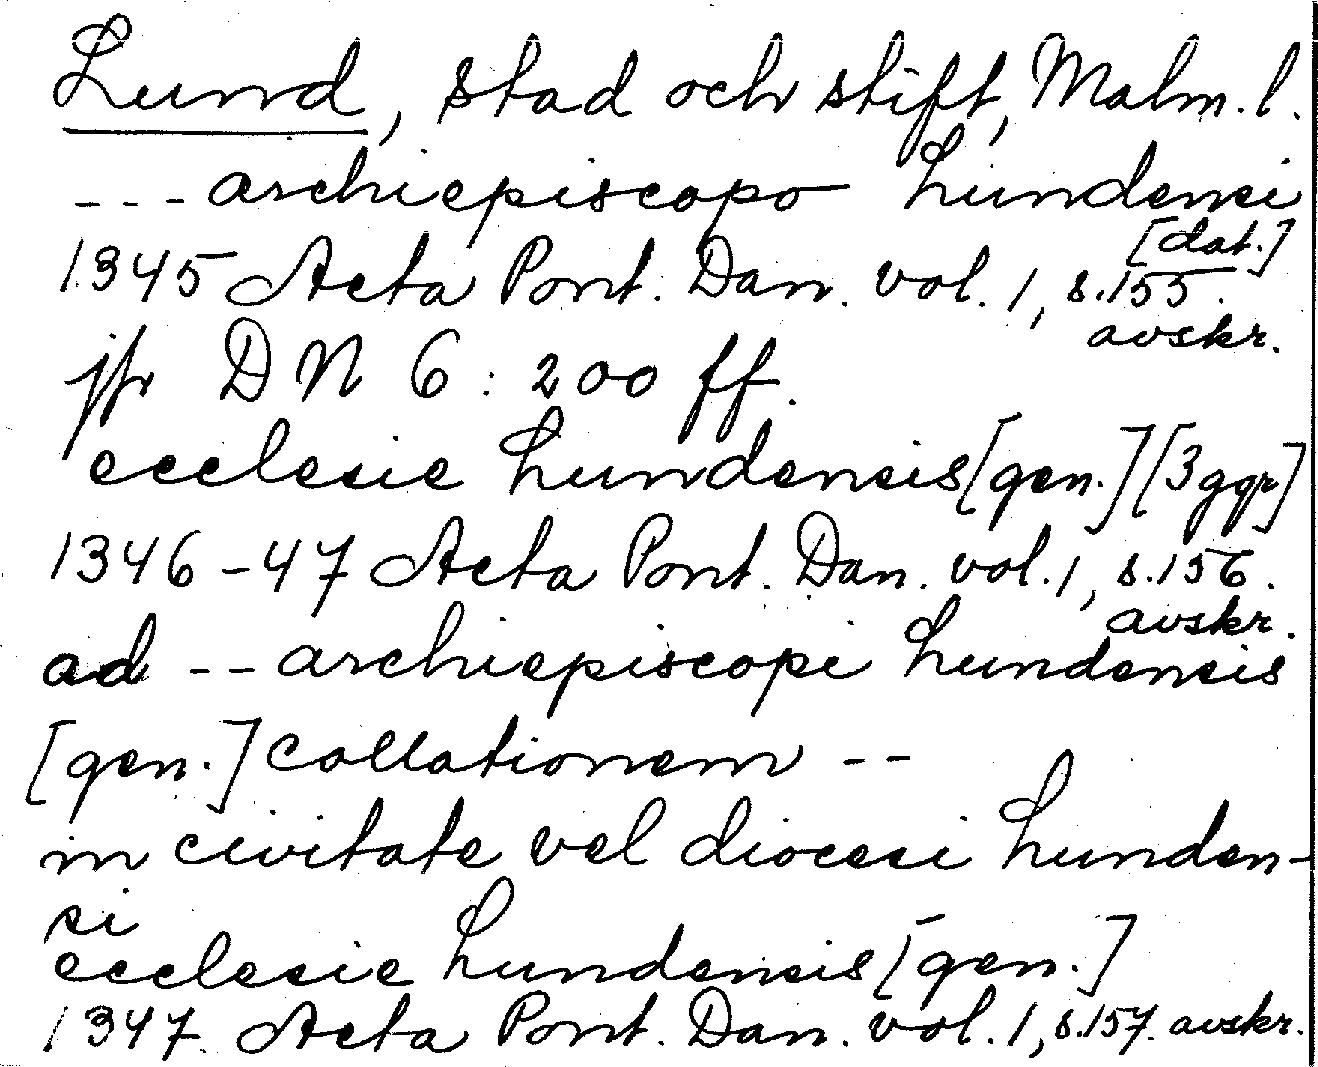 Lund, stad och stift, Malm. l.
--- archiepiscopo Lundensi
[dat.]
1345 Acta Pont. Dan. vol. 1, s. 155.
avskr.
jfr DN 6: 200 ff.
ecclesie Lundensis [gen.] [3 ggr]
1346-47 Acta Pont. Dan. vol. 1, s. 156.
avskr.
ad -- archiepiscopi Lundensis
[gen.] collationem --
in civitate vel diocesi Lunden-
si
ecclesie Lundensis [gen.]
1347 Acta Pont. Dan. vol. 1, s. 157. avskr.